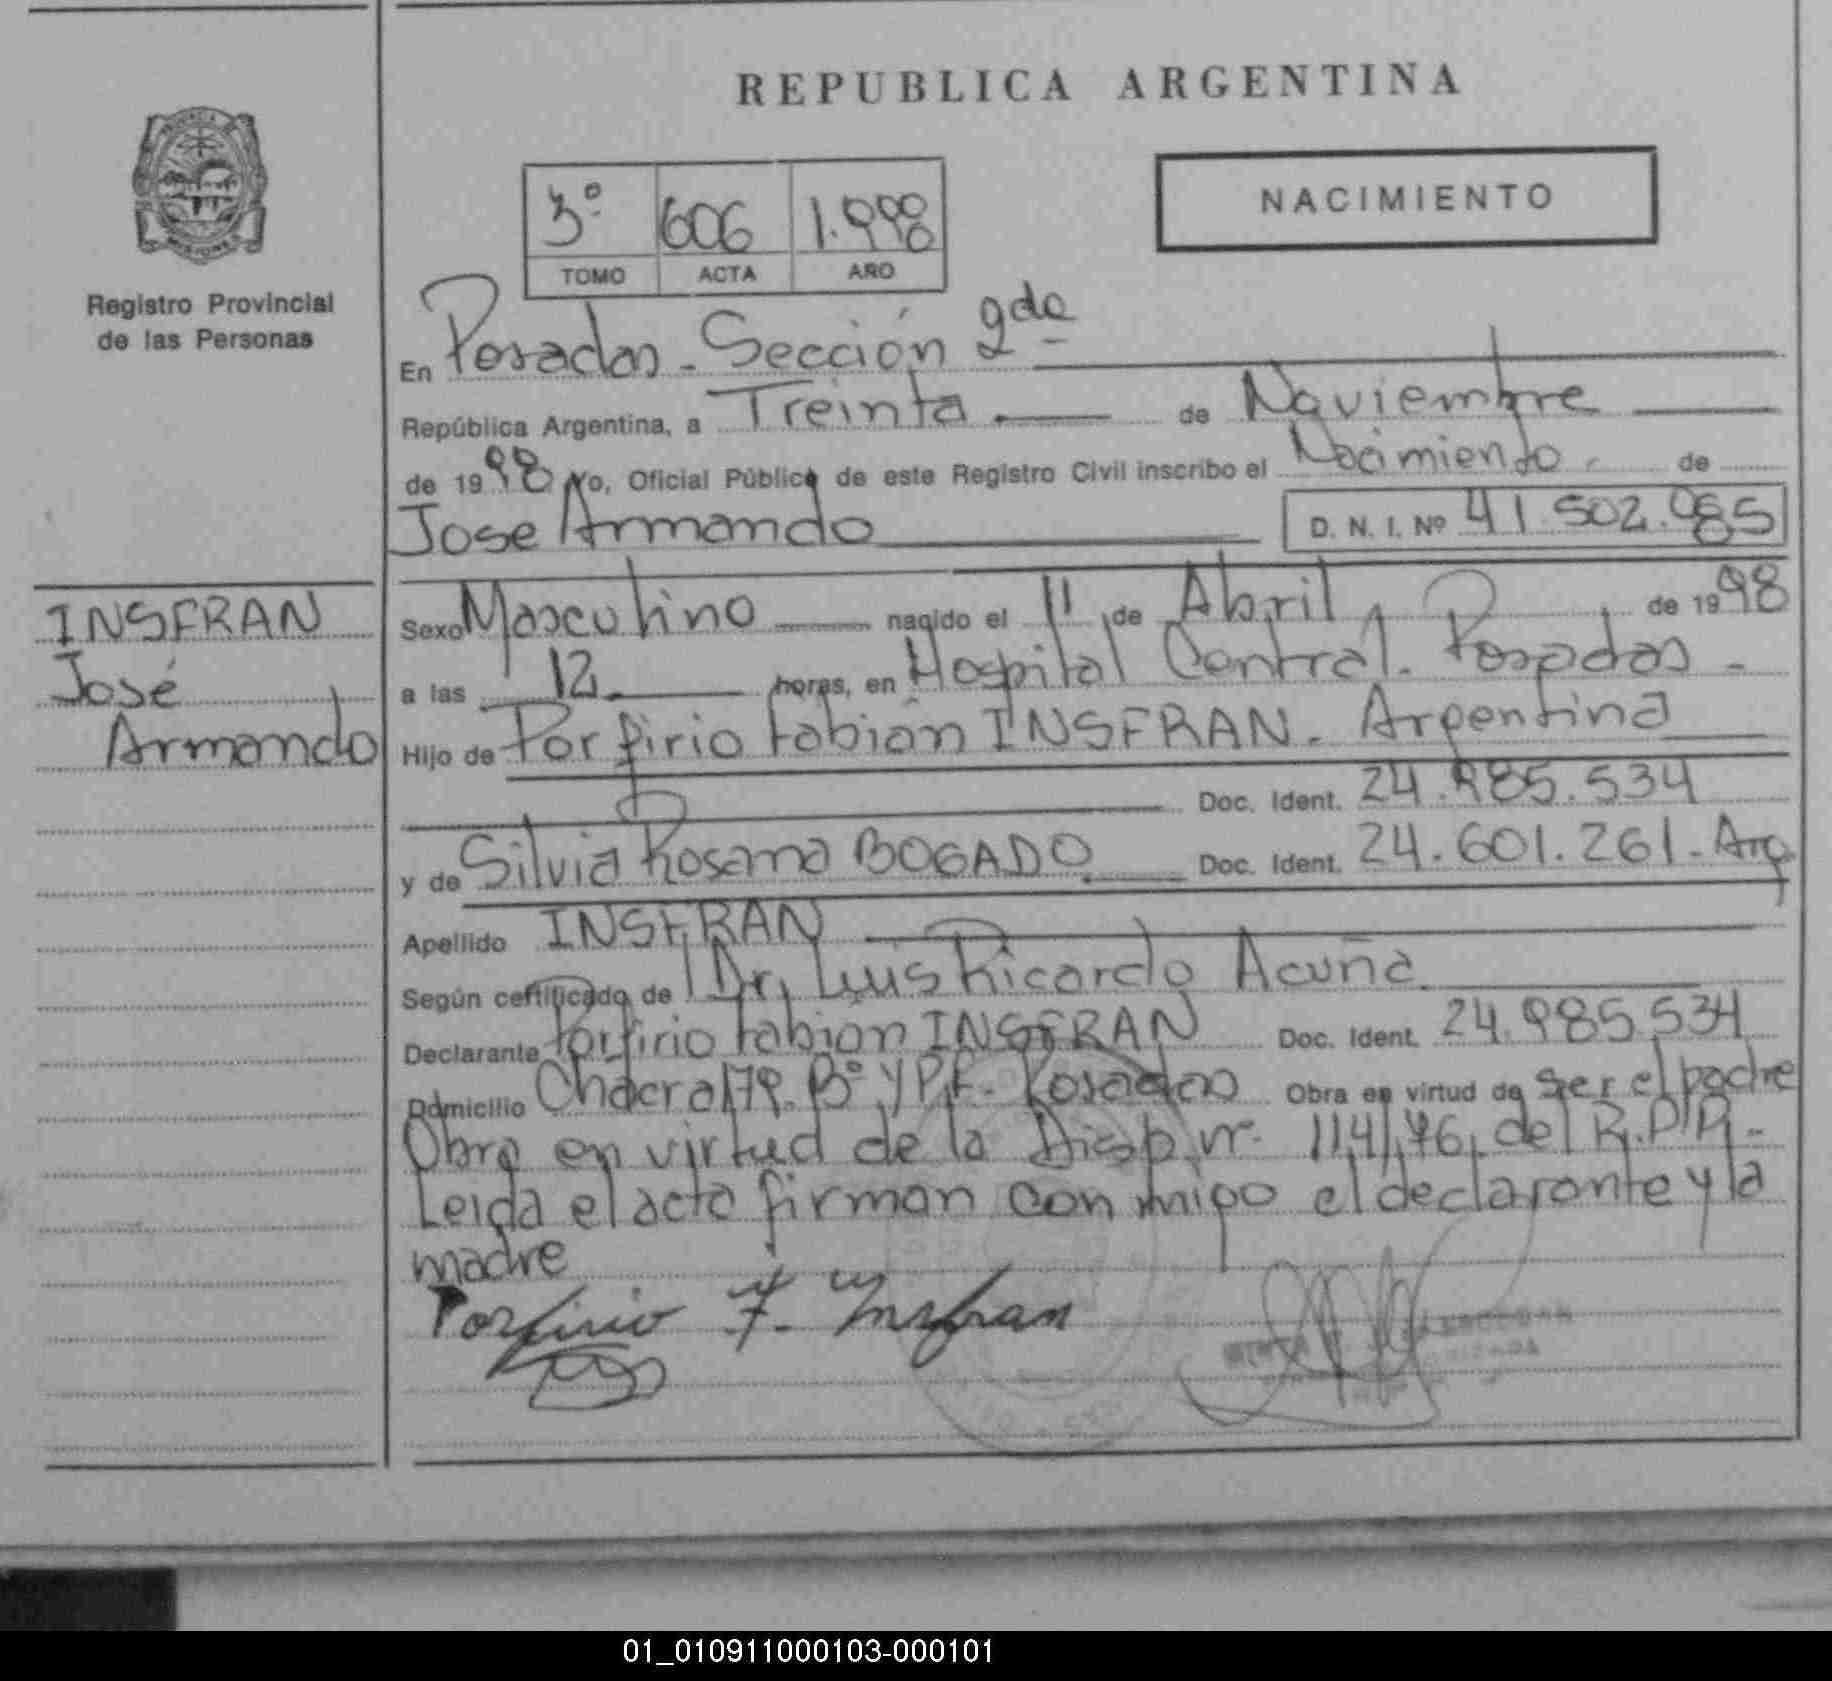 REPUBLICA ARGENTINA
PROVINCIA
MISIONES
Registro Provincial
de las Personas
3º 606 1.998
TOMO ACTA AÑO
NACIMIENTO
En Posadas - Sección 2da
República Argentina, a Treinta de Noviembre
de 1998 Yo, Oficial Público de este Registro Civil inscribo el Nacimiento de
Jose Armando D. N. I. Nº 41.502.985
INSFRAN
José
Armando
Sexo Masculino nacido el 11 de Abril de 1998
a las 12 horas, en Hospital Central. Posadas -
Hijo de Porfirio Fabián INSFRAN. Argentina
Doc. Ident. 24.985.534
y de Silvia Rosana BOGADO Doc. Ident. 24.601.261 - Arg
Apellido INSFRAN
Según certificado de Dr, Luis Ricardo Acuña
Declarante Porfirio Fabian INSFRAN Doc. Ident. 24.985.534
Domicilio Chacra 179. Bº YPF. Posadas Obra en virtud de ser el padre
Obra en virtud de la Disp. nr. 114/76, del R.P.P. -
Leida el acta firman con migo el declarante y la
madre
Porfirio F. Insfran
01_010911000103-000101